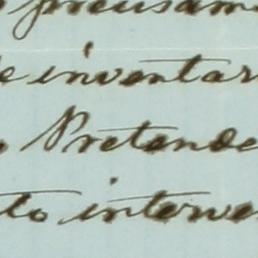 precisam
e inventar
Pretende
to interve